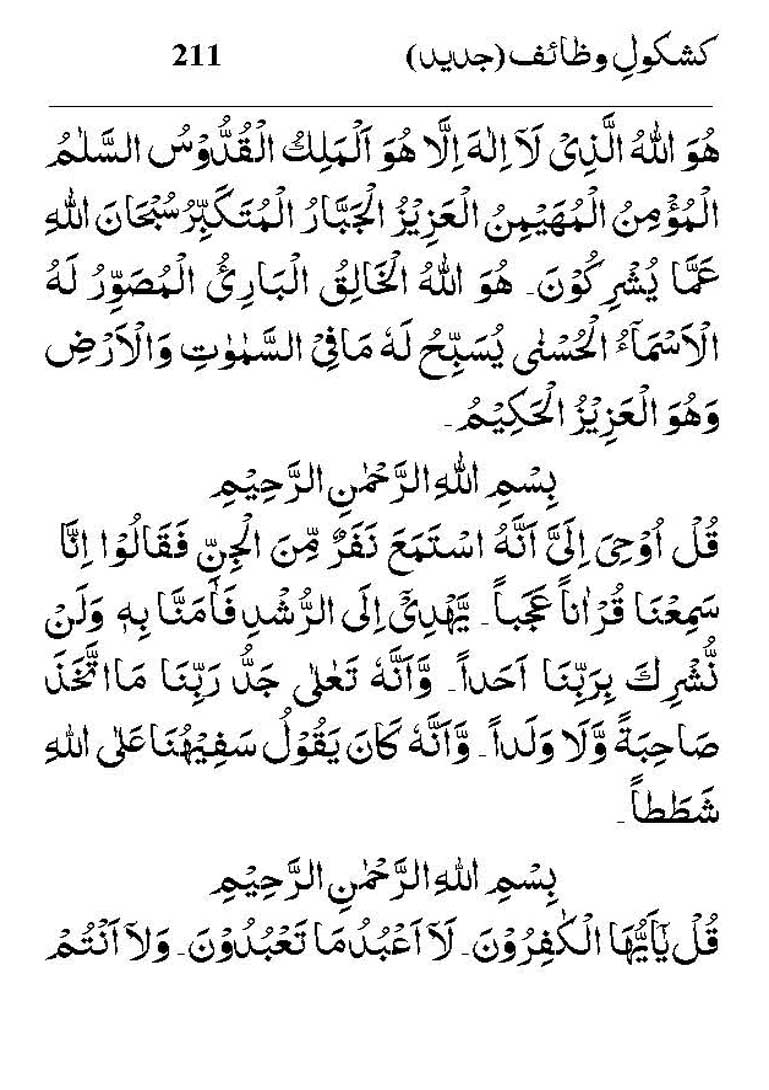 کشکولِ وظائف (جدید) 211
هُوَ اللّٰهُ الَّذِیْ لَآ اِلٰهَ اِلَّا هُوَ اَلْمَلِكُ الْقُدُّوْسُ السَّلٰمُ
الْمُؤْمِنُ الْمُهَیْمِنُ الْعَزِیْزُ الْجَبَّارُ الْمُتَكَبِّرُ سُبْحَانَ اللّٰهِ
عَمَّا یُشْرِكُوْنَ۔ هُوَ اللّٰهُ الْخَالِقُ الْبَارِئُ الْمُصَوِّرُ لَهُ
الْاَسْمَآءُ الْحُسْنٰی یُسَبِّحُ لَهٗ مَا فِیْ السَّمٰوٰتِ وَالْاَرْضِ
وَهُوَ الْعَزِیْزُ الْحَكِیْمُ۔
بِسْمِ اللّٰهِ الرَّحْمٰنِ الرَّحِیْمِ
قُلْ اُوْحِیَ اِلَیَّ اَنَّهُ اسْتَمَعَ نَفَرٌ مِّنَ الْجِنِّ فَقَالُوْا اِنَّا
سَمِعْنَا قُرْاٰناً عَجَباً۔ یَّهْدِیْٓ اِلَی الرُّشْدِ فَاٰمَنَّا بِهٖ وَلَنْ
نُّشْرِكَ بِرَبِّنَا اَحَداً۔ وَّاَنَّهٗ تَعٰلٰی جَدُّ رَبِّنَا مَا اتَّخَذَ
صَاحِبَةً وَّلَا وَلَداً۔ وَّاَنَّهٗ كَانَ یَقُوْلُ سَفِیْهُنَا عَلَی اللّٰهِ
شَطَطاً۔
بِسْمِ اللّٰهِ الرَّحْمٰنِ الرَّحِیْمِ
قُلْ یٰٓاَیُّهَا الْكٰفِرُوْنَ۔ لَآ اَعْبُدُ مَا تَعْبُدُوْنَ۔ وَلَآ اَنْتُمْ